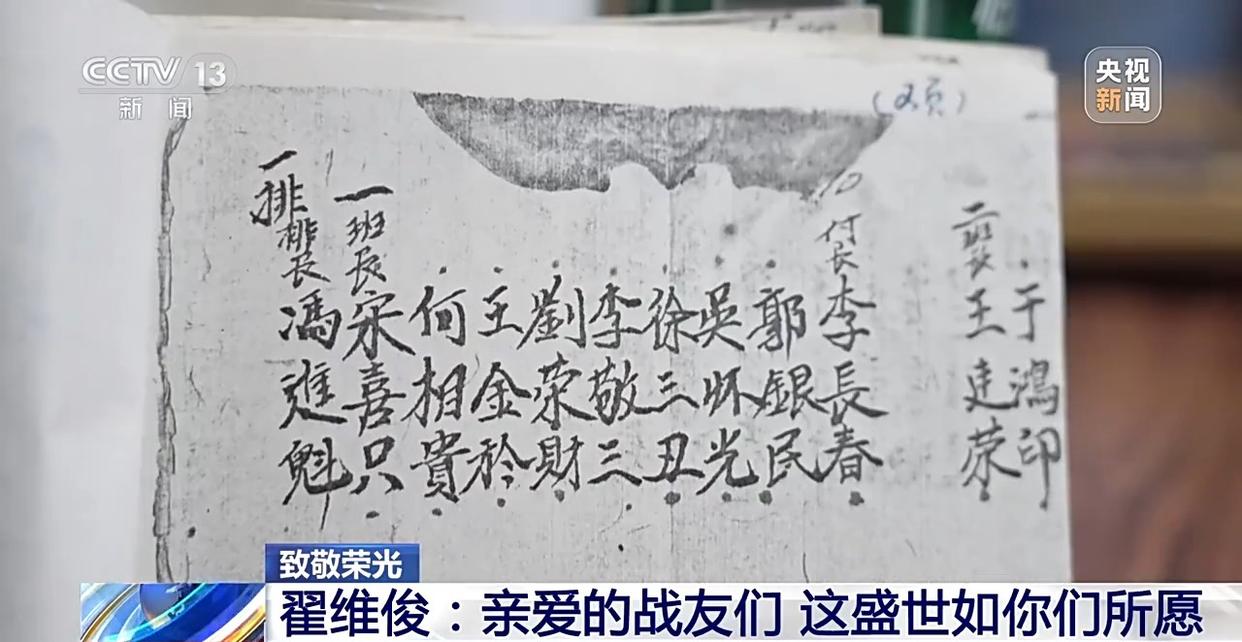 CCTV 13
新闻
央视
新闻
(2页)
一排
排长
馮進魁
一班长
宋喜只
何相貴
王金於
劉荣財
李敬三
徐三丑
吳怀光
郭銀民
付
长
李長春
二班长
王連荣
于鴻印
致敬荣光
翟维俊：亲爱的战友们 这盛世如你们所愿